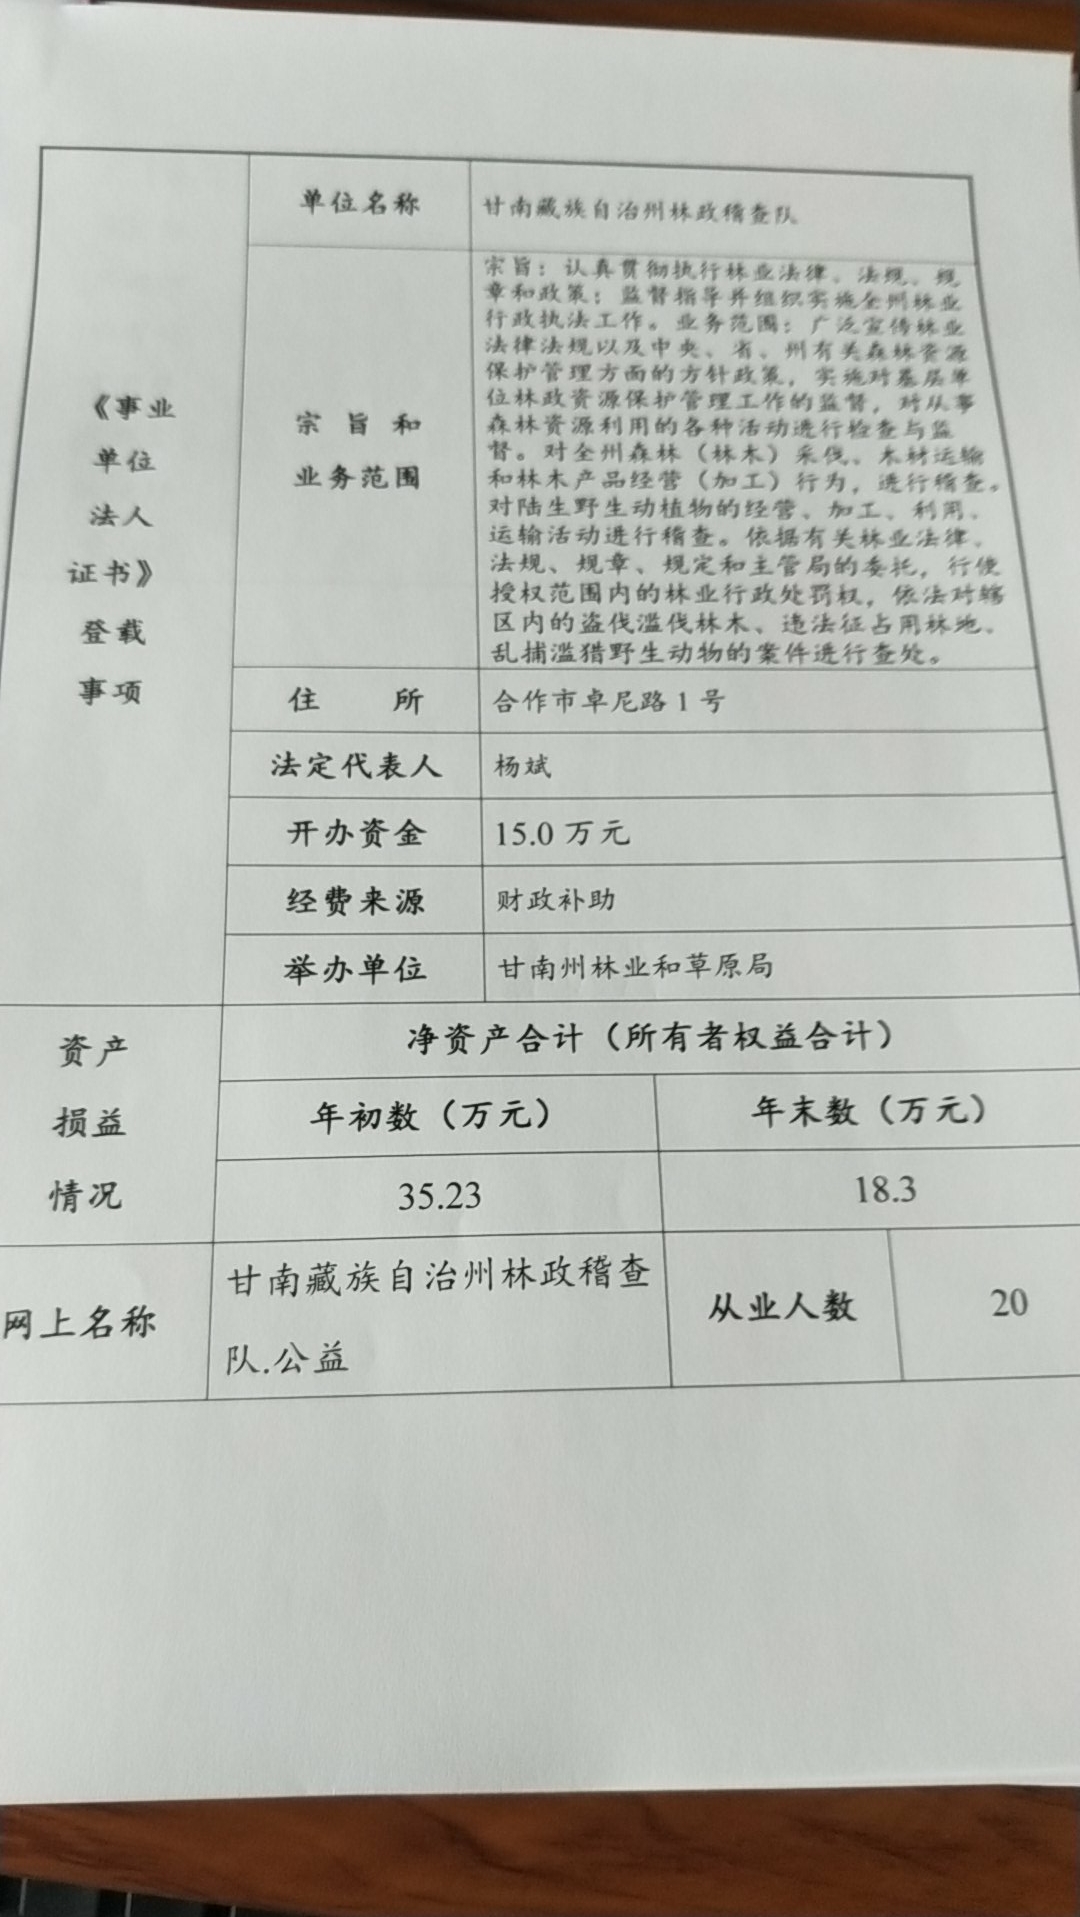 《事业
单位
法人
证书》
登载
事项
单位名称
甘南藏族自治州林政稽查队
宗旨和
业务范围
宗旨：认真贯彻执行林业法律、法规、规
章和政策；监督指导并组织实施全州林业
行政执法工作。业务范围：广泛宣传林业
法律法规以及中央、省、州有关森林资源
保护管理方面的方针政策，实施对基层单
位林政资源保护管理工作的监督，对从事
森林资源利用的各种活动进行检查与监
督。对全州森林（林木）采伐、木材运输
和林木产品经营（加工）行为，进行稽查。
对陆生野生动植物的经营、加工、利用、
运输活动进行稽查。依据有关林业法律、
法规、规章、规定和主管局的委托，行使
授权范围内的林业行政处罚权，依法对辖
区内的盗伐滥伐林木、违法征占用林地、
乱捕滥猎野生动物的案件进行查处。
住 所
合作市卓尼路1号
法定代表人
杨斌
开办资金
15.0万元
经费来源
财政补助
举办单位
甘南州林业和草原局
资产
损益
情况
净资产合计（所有者权益合计）
年初数（万元）
年末数（万元）
35.23
18.3
网上名称
甘南藏族自治州林政稽查
队.公益
从业人数
20